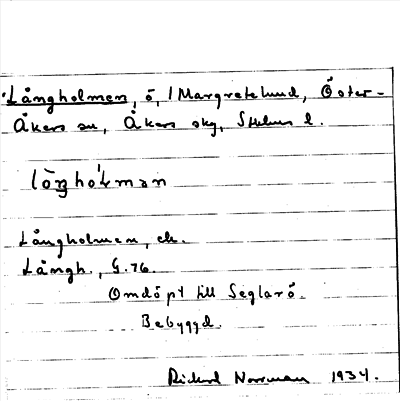 Långholmen, ö, / Margretelund, Öster-
Åkers sn, Åkers skg, Sthlms l.
Långholmen, ek.
Långh., G. 76.
Omdöpt till Seglarö.
Bebyggd.
Rickard Norrman 1934.